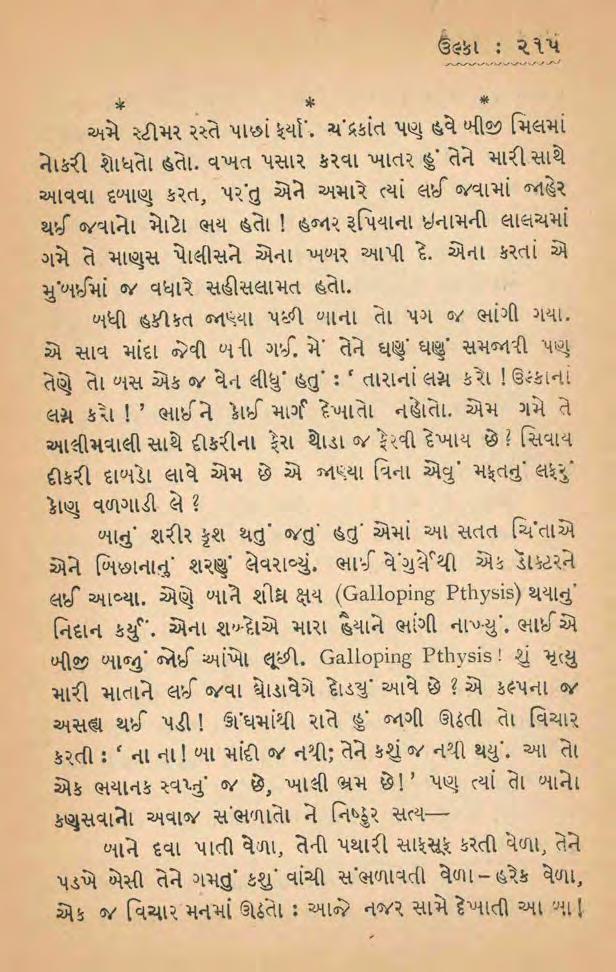 ઉલ્કા : ૨૧૫
* * *
અમે સ્ટીમર રસ્તે પાછાં ફર્યાં. ચંદ્રકાંત પણ હવે બીજી મિલમાં
નોકરી શોધતો હતો. વખત પસાર કરવા ખાતર હું તેને મારી સાથે
આવવા દબાણ કરત, પરંતુ એને અમારે ત્યાં લઈ જવામાં જાહેર
થઈ જવાનો મોટો ભય હતો ! હજાર રૂપિયાના ઇનામની લાલચમાં
ગમે તે માણસ પોલીસને એના ખબર આપી દે. એના કરતાં એ
મુંબઈમાં જ વધારે સહીસલામત હતો.
બધી હકીકત જાણ્યા પછી બાના તો પગ જ ભાંગી ગયા.
એ સાવ માંદા જેવી બની ગઈ. મેં તેને ઘણું ઘણું સમજાવી પણ
તેણે તો બસ એક જ વેન લીધું હતું : ‘ તારાનાં લગ્ન કરો ! ઉલ્કાનાં
લગ્ન કરો ! ’ ભાઈને કોઈ માર્ગ દેખાતો નહોતો. એમ ગમે તે
આલીમવાલી સાથે દીકરીના ફેરા થોડા જ ફેરવી દેખાય છે ? સિવાય
દીકરી દાબડો લાવે એમ છે એ જાણ્યા વિના એવું મફતનું લફરું
કોણ વળગાડી લે ?
બાનું શરીર કૃશ થતું જતું હતું એમાં આ સતત ચિંતાએ
એને બિછાનાનું શરણું લેવરાવ્યું. ભાઈ વેંગુર્લેથી એક ડૉક્ટરને
લઈ આવ્યા. એણે બાને શીઘ્ર ક્ષય (Galloping Pthysis) થયાનું
નિદાન કર્યું. એના શબ્દોએ મારા હૈયાને ભાંગી નાખ્યું. ભાઈએ
બીજી બાજું જોઈ આંખો લૂછી. Galloping Pthysis ! શું મૃત્યુ
મારી માતાને લઈ જવા ઘોડાવેગે દોડયું આવે છે ? એ કલ્પના જ
અસહ્ય થઈ પડી ! ઊંઘમાંથી રાતે હું જાગી ઊઠતી તો વિચાર
કરતી : ‘ ના ના ! બા માંદી જ નથી; તેને કશું જ નથી થયું. આ તો
એક ભયાનક સ્વપ્નું જ છે, ખાલી ભ્રમ છે!’ પણ ત્યાં તો બાનો
કણસવાનો અવાજ સંભળાતો ને નિષ્ઠુર સત્ય—
બાને દવા પાતી વેળા, તેની પથારી સાફસૂફ કરતી વેળા, તેને
પડખે બેસી તેને ગમતું કશું વાંચી સંભળાવતી વેળા – હરેક વેળા,
એક જ વિચાર મનમાં ઊઠતો : આજે નજર સામે દેખાતી આ બા !